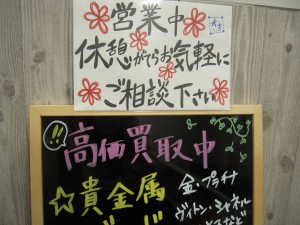 営業中
休憩がてらお気軽に
ご相談下さい
!!
高価買取中
☆貴金属
金・プラチナ
ヴィトン・シャネル